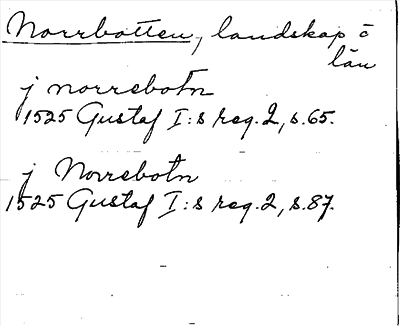 Norrbotten, landskap o
län
j norrebotn
1525 Gustaf I:s reg. 2, s. 65.
j Norrebotn
1525 Gustaf I:s reg. 2, s. 87.